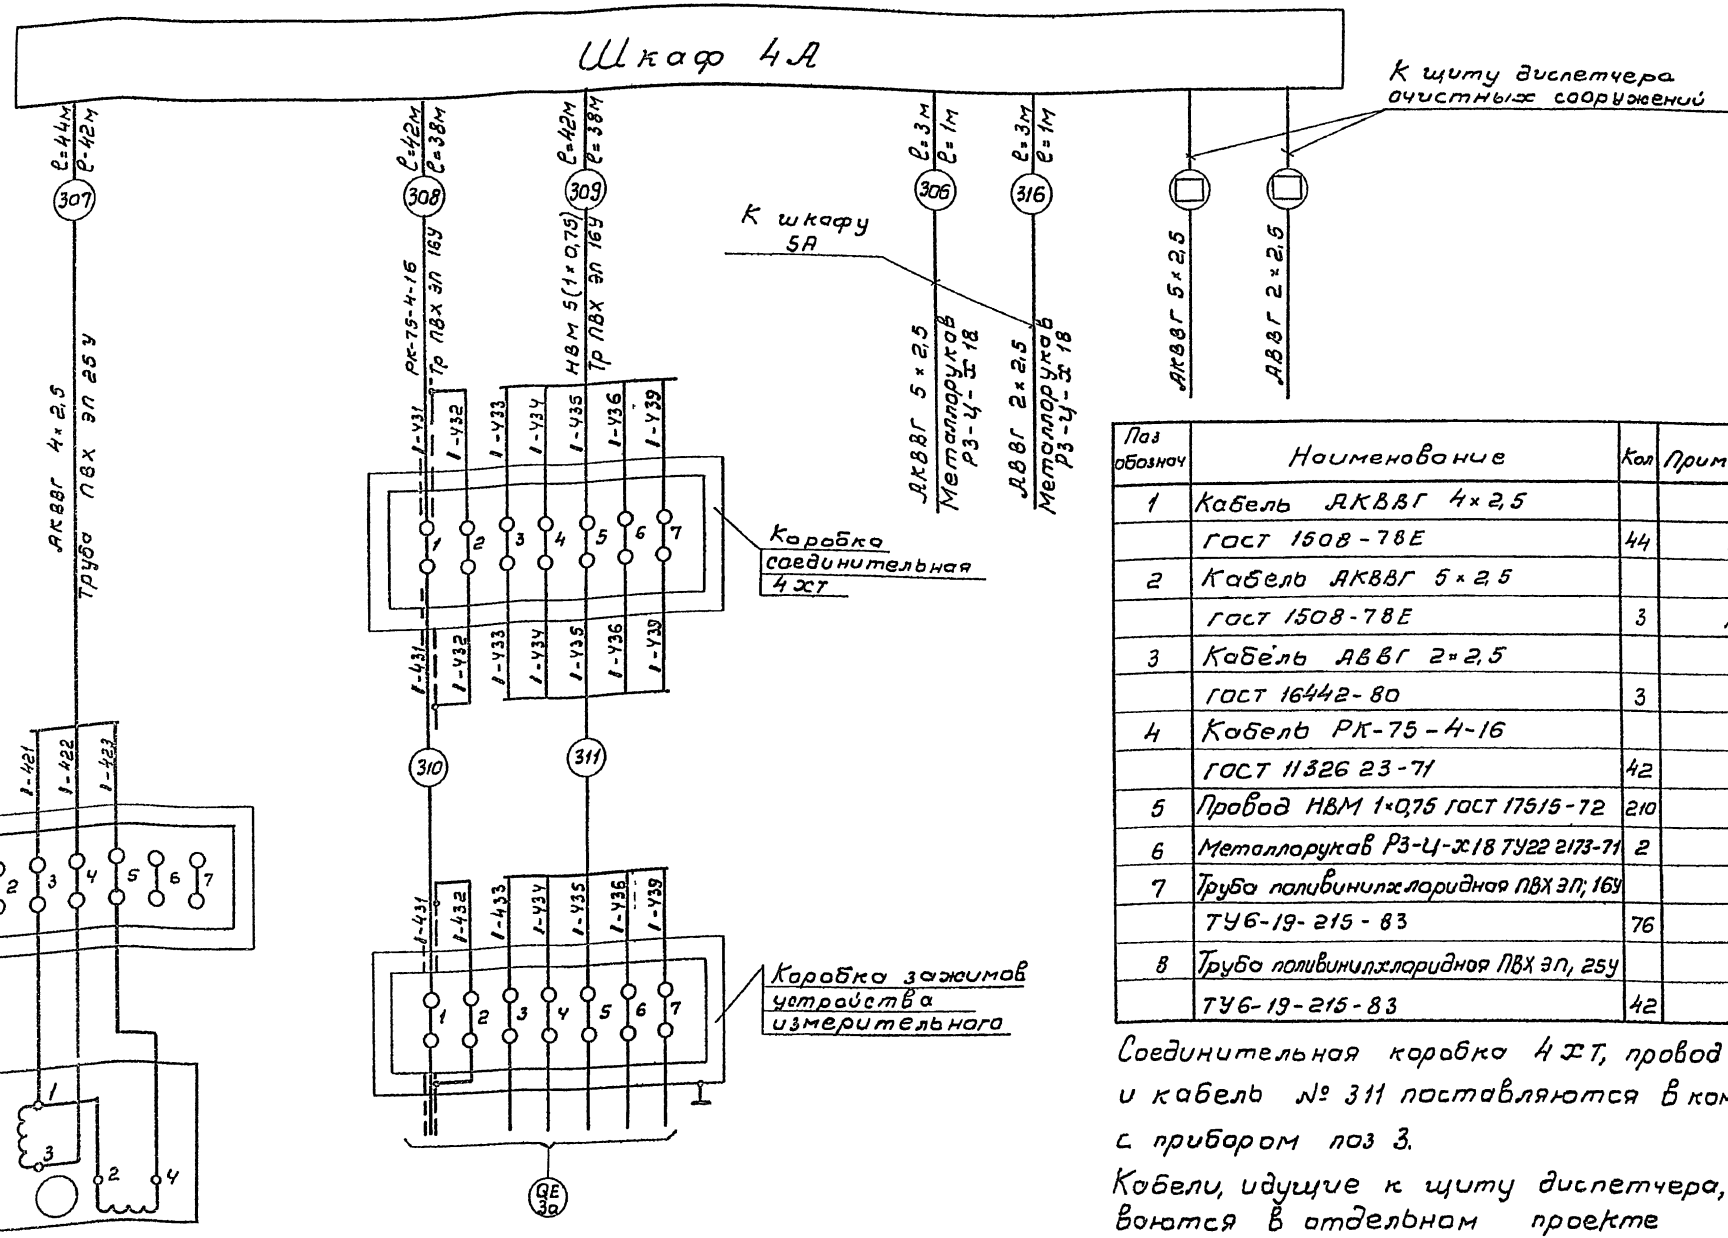 Шкаф 4А
К щиту диспетчера
очистных сооружений
ℓ=44м
ℓ-42м
ℓ=42м
ℓ=38м
ℓ=42м
ℓ=38м
ℓ=3м
ℓ=1м
ℓ=3м
ℓ=1м
307
308
309
306
316
К шкафу
5А
АКВВГ 4×2,5
Труба ПВХ ЭП 25У
РК-75-4-16
Тр ПВХ ЭП 16У
НВМ 5(1×0,75)
Тр ПВХ ЭП 16У
АКВВГ 5×2,5
Металлорукав
РЗ-Ц-Х 18
АВВГ 2×2,5
Металлорукав
РЗ-Ц-Х 18
АКВВГ 5×2,5
АВВГ 2×2,5
1-431
1-432
1-433
1-434
1-435
1-436
1-439
1 2 3 4 5 6 7
Коробка
соединительная
4ХТ
1-431
1-432
1-433
1-434
1-435
1-436
1-439
310
311
1-421
1-422
1-423
2 3 4 5 6 7
1-431
1-432
1-433
1-434
1-435
1-436
1-439
1 2 3 4 5 6 7
Коробка зажимов
устройства
измерительного
1
3
2
4
QE
3а
Поз обознач Наименование Кол Прим
1 Кабель АКВВГ 4×2,5
ГОСТ 1508-78Е 44
2 Кабель АКВВГ 5×2,5
ГОСТ 1508-78Е 3
3 Кабель АВВГ 2×2,5
ГОСТ 16442-80 3
4 Кабель РК-75-4-16
ГОСТ 11326 23-71 42
5 Провод НВМ 1×0,75 ГОСТ 17515-72 210
6 Металлорукав РЗ-Ц-Х18 ТУ22 2173-71 2
7 Труба поливинилхлоридная ПВХ ЭП; 16У
ТУ6-19-215-83 76
8 Труба поливинилхлоридная ПВХ ЭП, 25У
ТУ6-19-215-83 42
Соединительная коробка 4ХТ, провод
и кабель № 311 поставляются в ком
с прибором поз 3.
Кабели, идущие к щиту диспетчера,
ваются в отдельном проекте